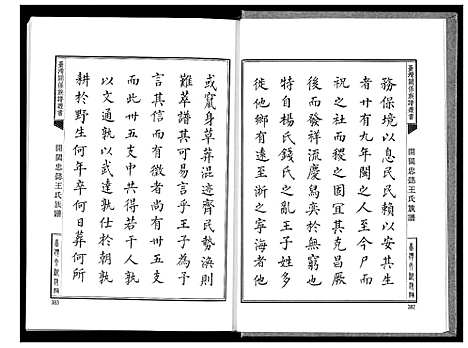 務保境以息民民賴以安其生
者廾有九年閩之人至今尸而
祝之社而稷之固宜其克昌厥
後而發祥流慶烏奕於無窮也
特自楊氏錢氏之亂王子王孫
徙他鄉有遠至浙之寧海者他
開閩忠懿王氏族譜
382
臺灣關係族譜叢書
開閩忠懿王氏族譜
383
或竄身草莽混迹齊民勢渙則
難萃譜其可得乎王子不復
言其信而有徵者尚有卅五支
而此卅五支中其在朝在
以文通孰以武達孰仕於朝孰
耕於野生何年卒何日葬何所